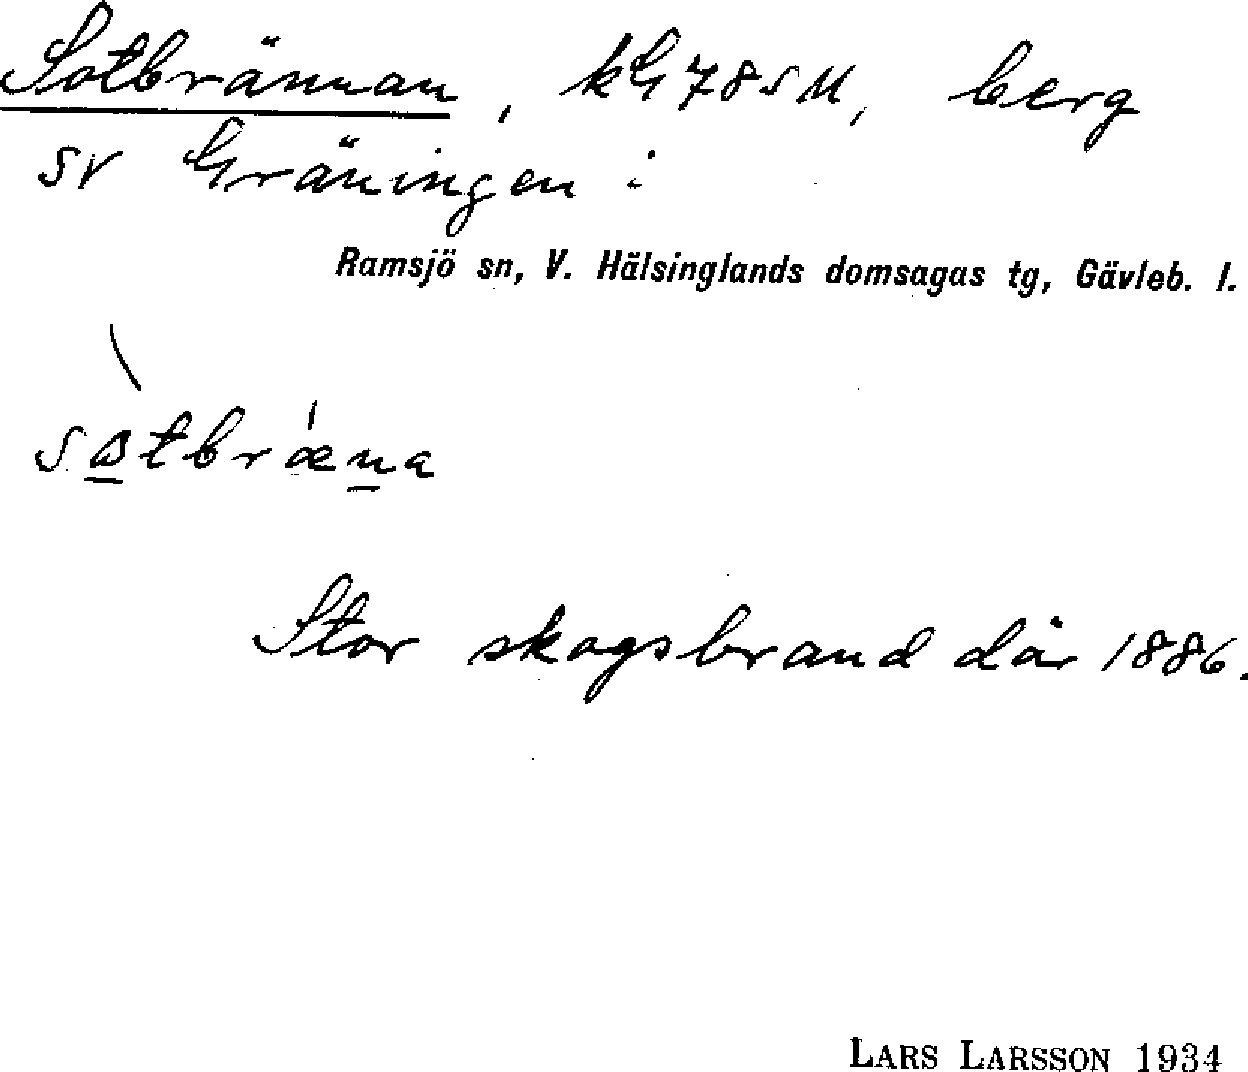 Sotbrännan, kG 785 M, berg
SV Gräningen i
Ramsjö sn, V. Hälsinglands domsagas tg, Gävleb. l.
sɷ̀tbrǽna
Stor skogsbrand där 1886.
LARS LARSSON 1934